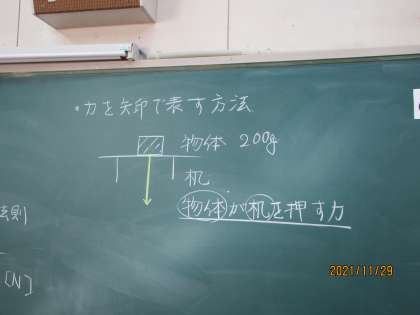 ・力を矢印で表す方法
物体 200g
机
物体が机を押す力
法則
[N]
2021/11/29